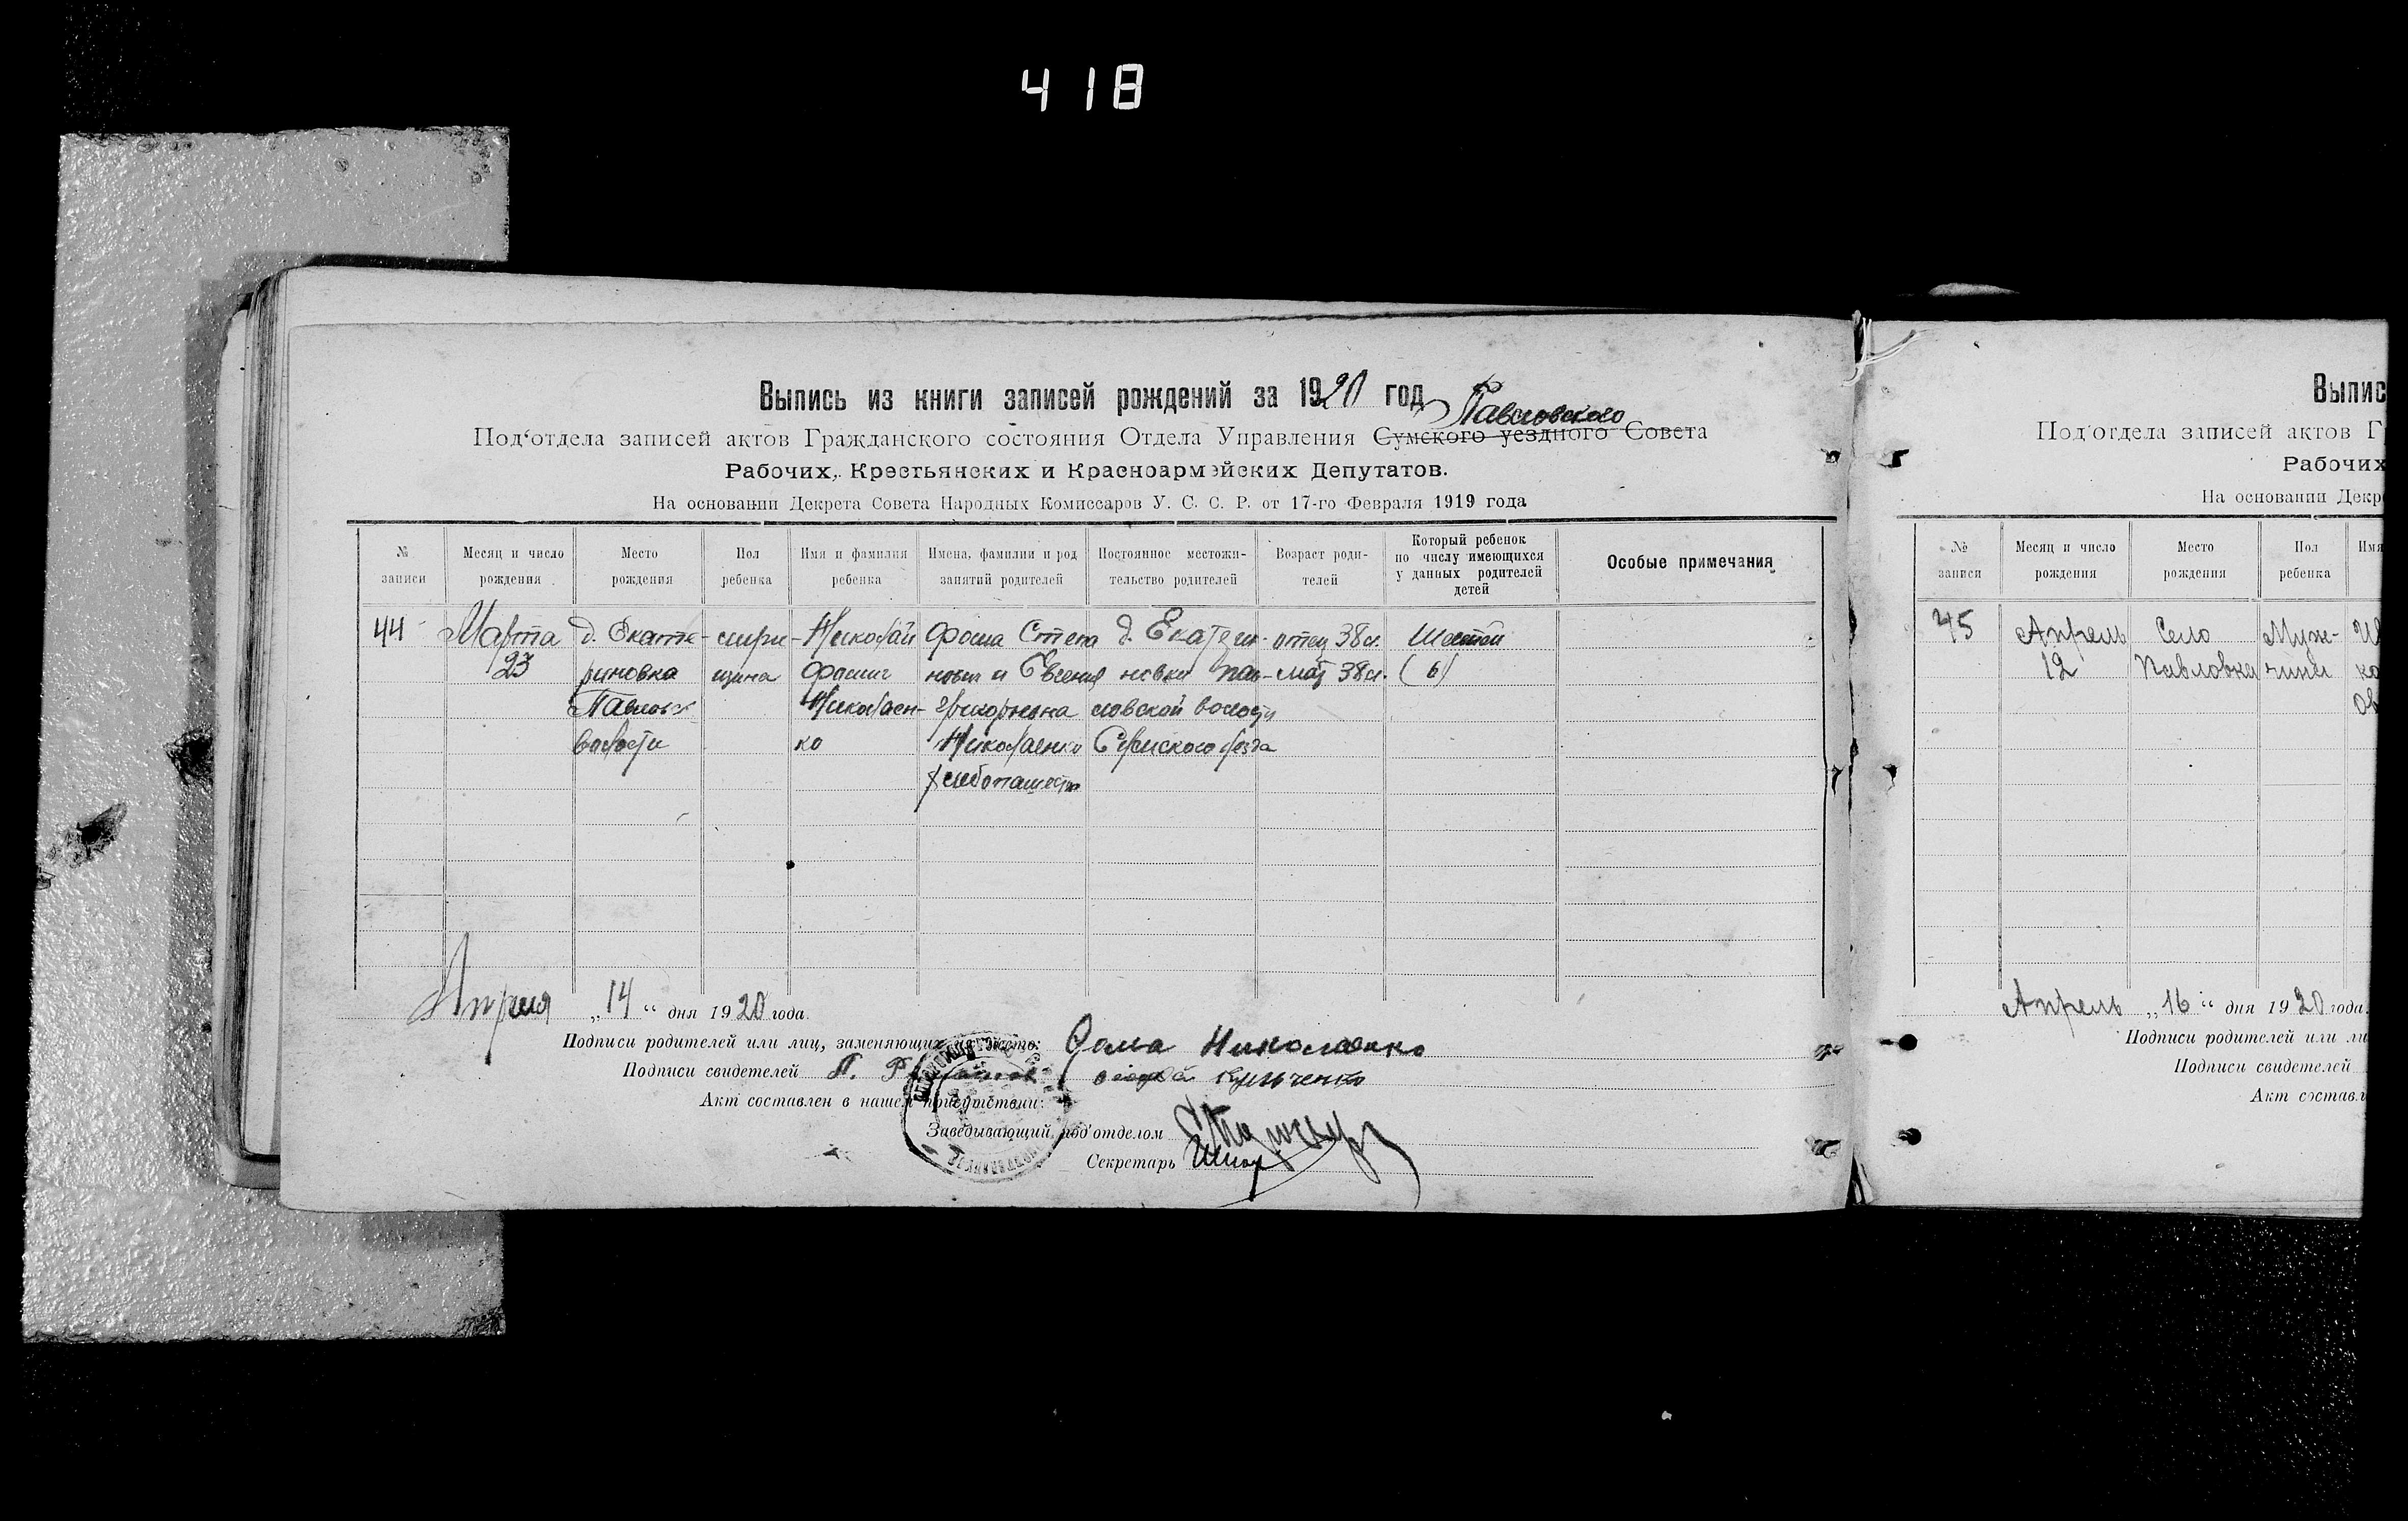 418
Выпись из книги записей рождений за 1920 год
Павловского
Под‘отдела записей актов Гражданского состояния Отдела Управления Сумского уездного Совета
Рабочих, Крестьянских и Красноармейских Депутатов.
На основании Декрета Совета Народных Комиссаров У. С. С. Р. от 17-го Февраля 1919 года
№ записи
Месяц и число рождения
Место рождения
Пол ребенка
Имя и фамилия ребенка
Имена, фамилии и род занятий родителей
Постоянное местожительство родителей
Возраст родителей
Который ребенок по числу имеющихся у данных родителей детей
Особые примечания
44 Марта д. Екате- Николай Фома Степа д. Екатери- отец 38 л. Шестой
23 риновка щина Фомич нович и Евгения новки Пав- мать 38 л. (6)
Павловск Николаен- Григорьевна ловской волости
волости ко Николаенко Сумского уезда
хлебопашест
Апреля „14“ дня 1920 года.
Подписи родителей или лиц, заменяющих их место: Фома Николаенко
Подписи свидетелей П.
Акт составлен в нашем присутствии:
Заведывающий под‘отделом
Секретарь
Выпис
Под‘отдела записей актов Г
Рабочих
На основании Декр
№ записи
Месяц и число рождения
Место рождения
Пол ребенка
Имя
45 Апрель Село Муж-
12 Павловка чина ко
Апрель „16“ дня 1920 года.
Подписи родителей или ли
Подписи свидетелей
Акт составл